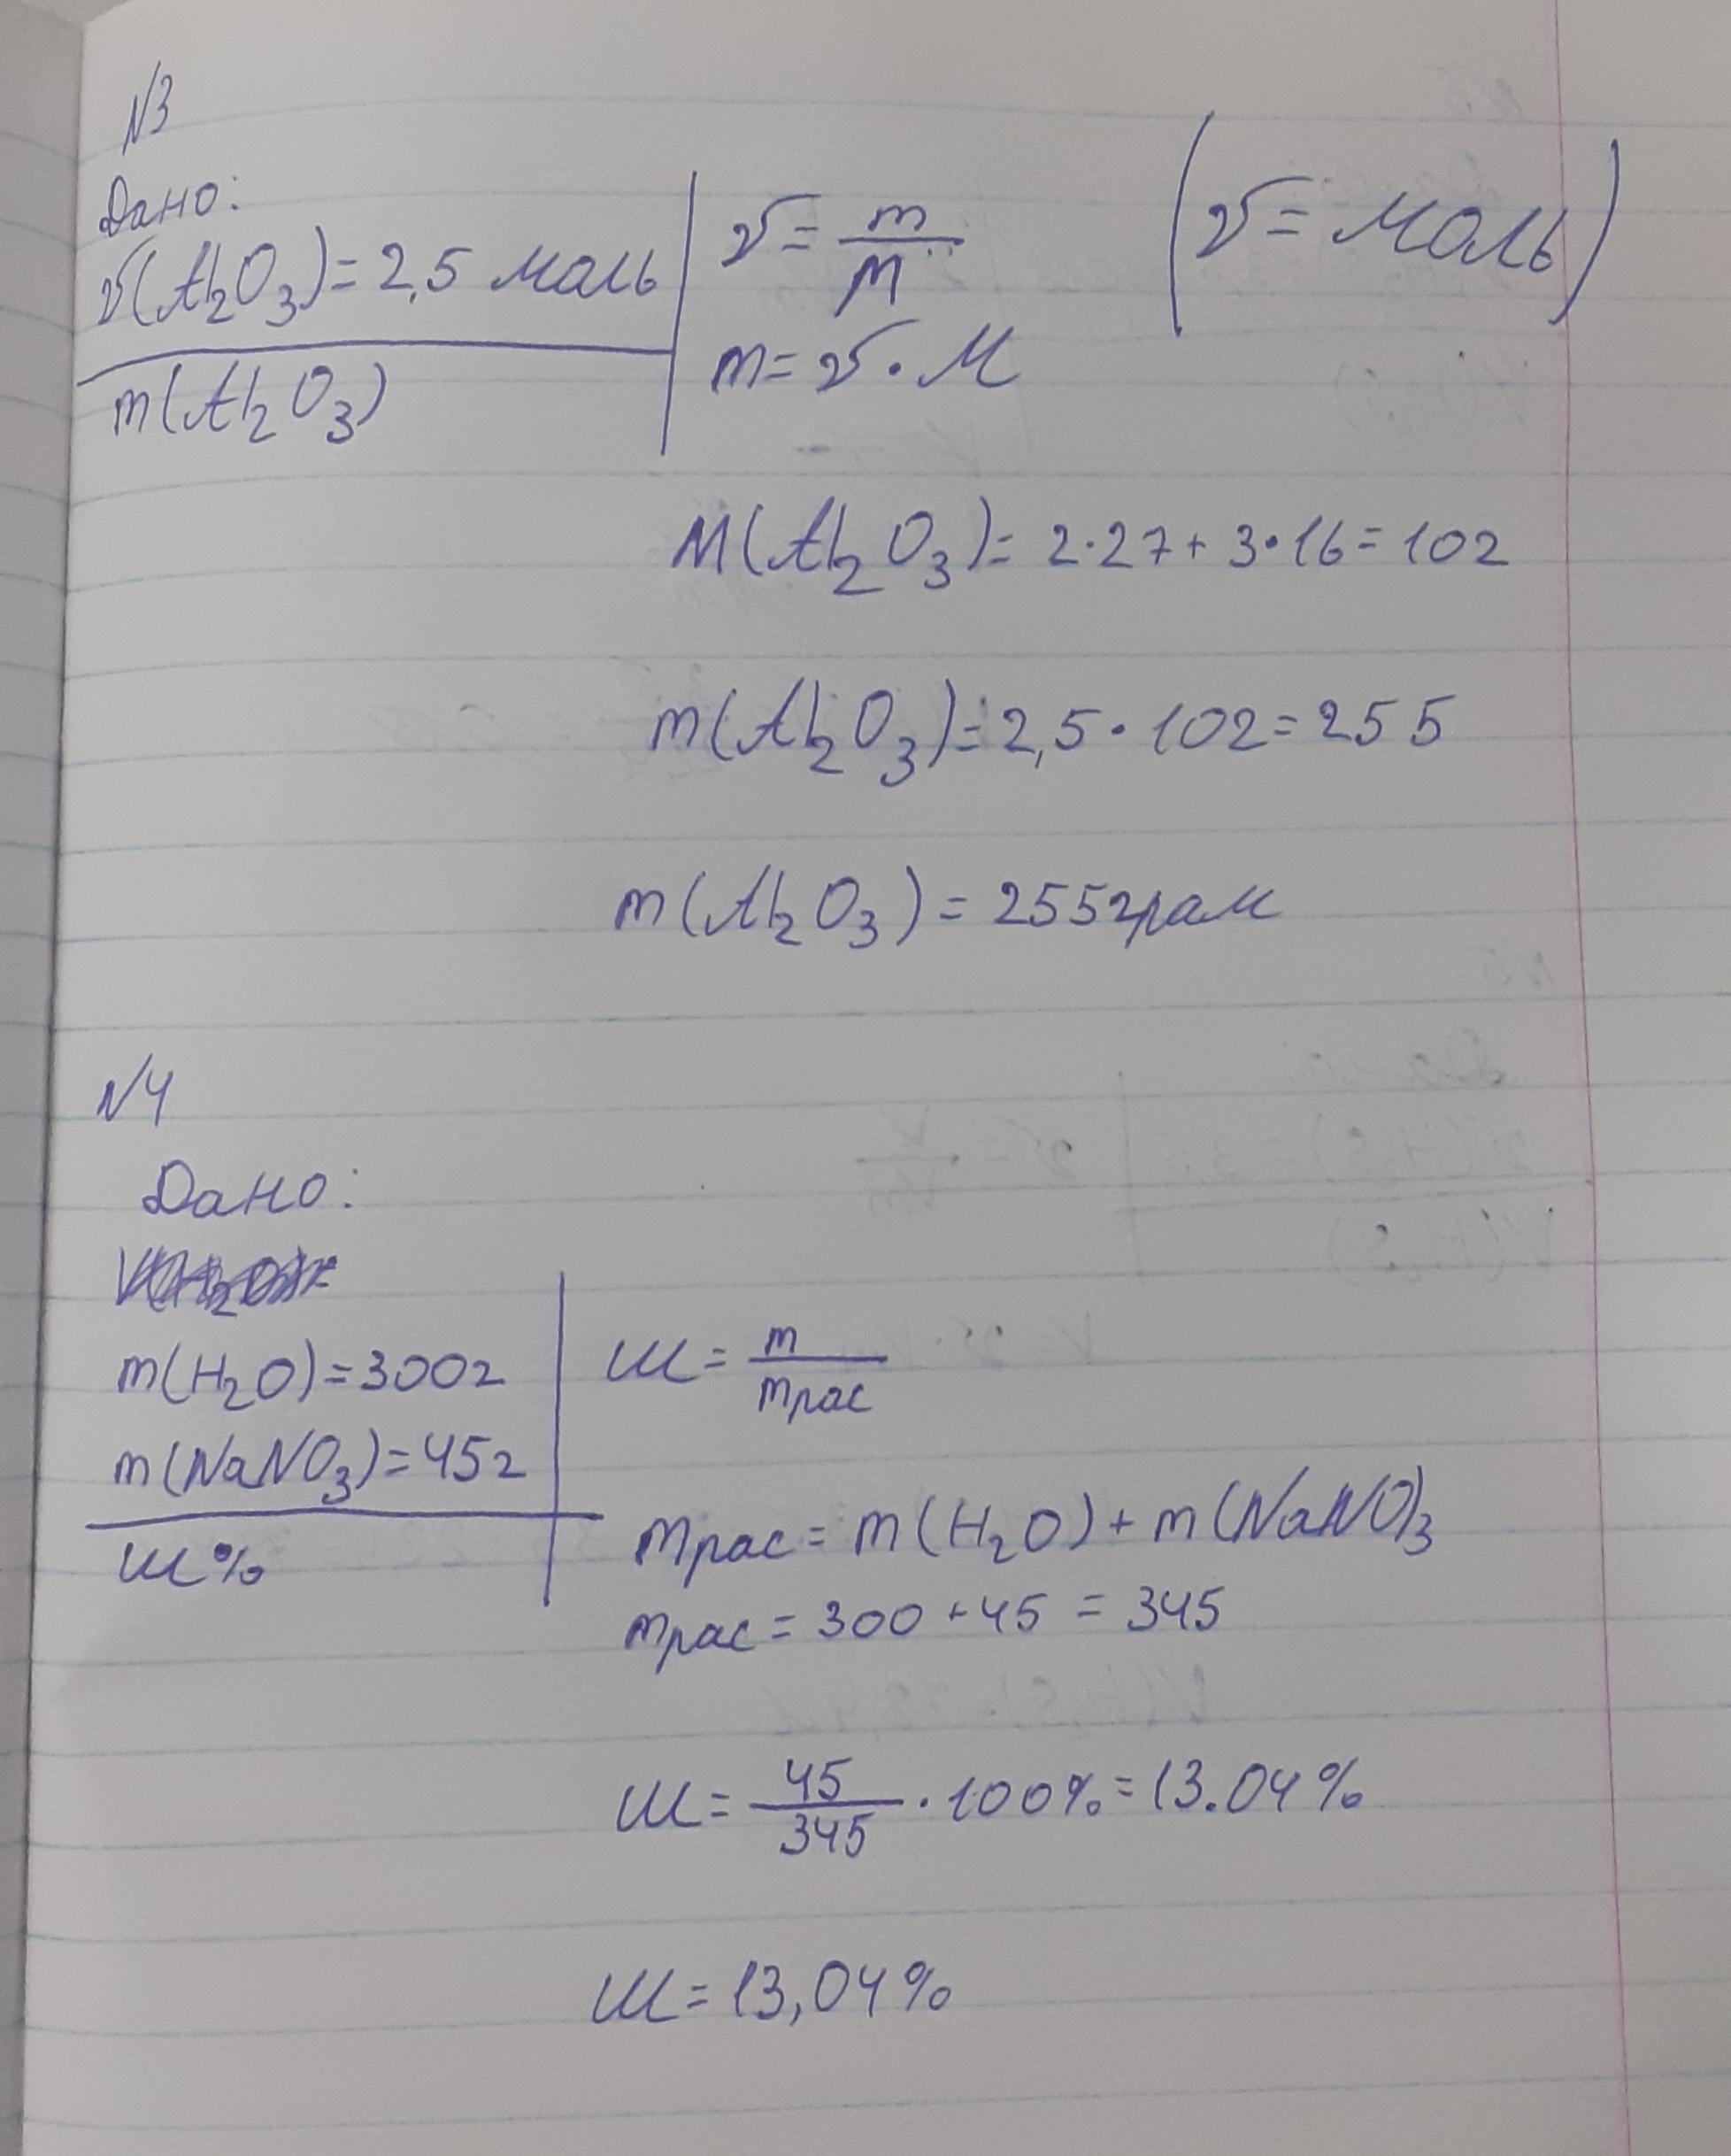 №3
Дано:
ν(Al₂O₃)=2,5 моль
m(Al₂O₃)
ν = m/M
(ν = моль)
m = ν · M
M(Al₂O₃)= 2·27 + 3·16 = 102
m(Al₂O₃)= 2,5 · 102 = 255
m(Al₂O₃) = 255грам
№4
Дано:
m(H₂O)=300г
m(NaNO₃)=45г
ш%
ш = m/mрас
mрас = m(H₂O) + m(NaNO)₃
mрас = 300 + 45 = 345
ш = 45/345 · 100% = 13.04%
ш = 13,04%